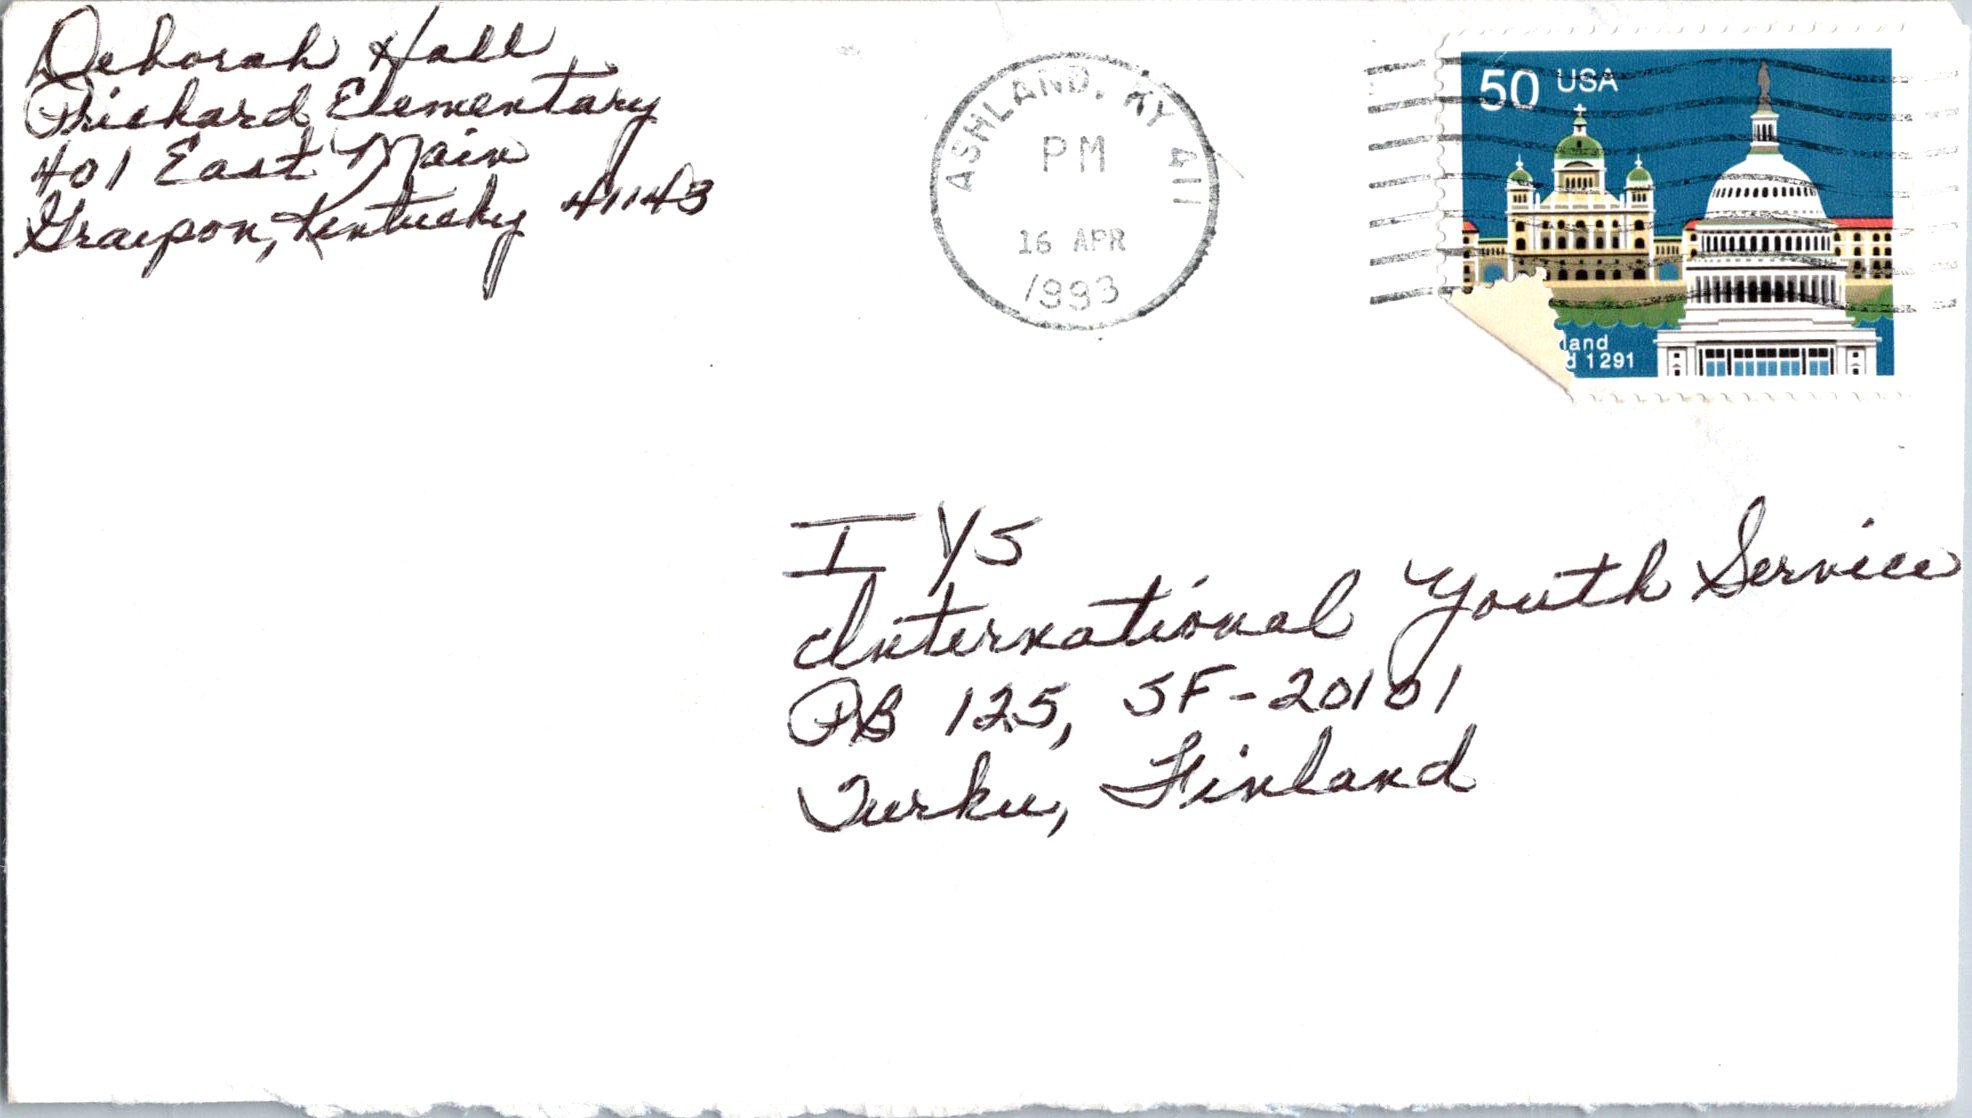 Deborah Hall
Prichard Elementary
401 East Main
Grayson, Kentucky 41143
ASHLAND, KY 411
PM
16 APR
1993
50 USA
land
d 1291
IYS
International Youth Service
PB 125, SF-20101
Turku, Finland